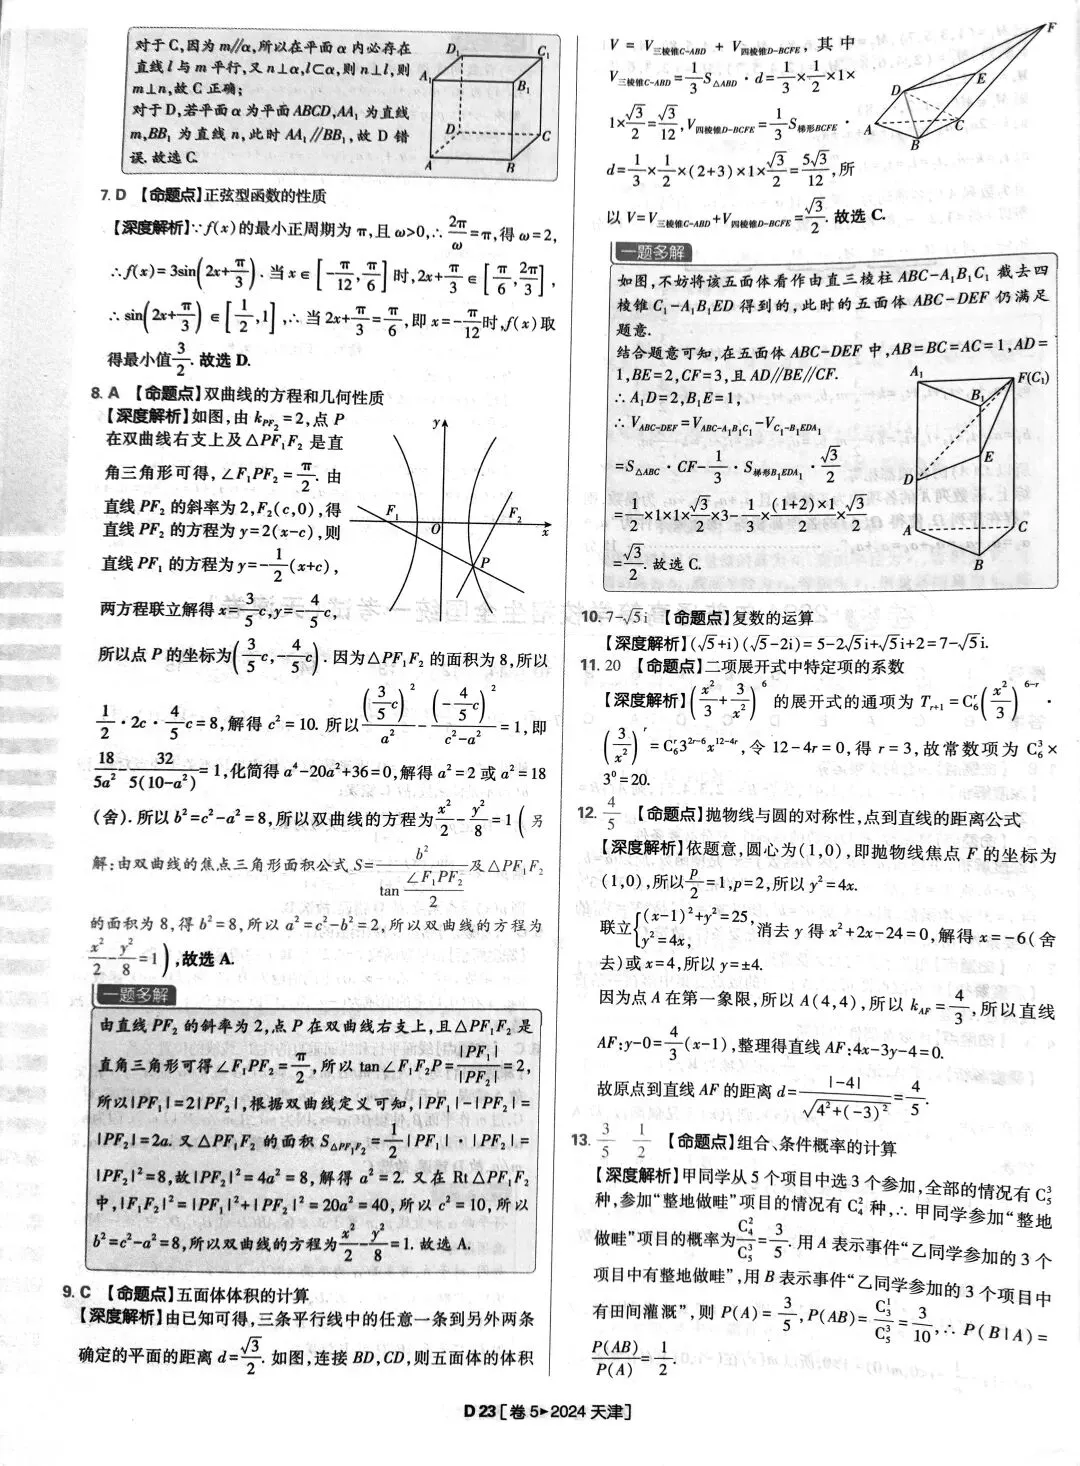 对于C,因为m//α,所以在平面α内必存在
直线l与m平行,又n⊥α,l⊂α,则n⊥l,则
m⊥n,故C正确;
对于D,若平面α为平面ABCD,AA₁为直线
m,BB₁为直线n,此时AA₁//BB₁,故D错
误.故选C.
D₁ C₁ A₁ B₁ D C A B
7. D 【命题点】正弦型函数的性质
【深度解析】∵f(x)的最小正周期为π,且ω>0,∴2π/ω=π,得ω=2,
∴f(x)=3sin(2x+π/3).当x∈[-π/12,π/6]时,2x+π/3∈[π/6,2π/3],
∴sin(2x+π/3)∈[1/2,1],∴当2x+π/3=π/6,即x=-π/12时,f(x)取
得最小值3/2.故选D.
8. A 【命题点】双曲线的方程和几何性质
【深度解析】如图,由k_PF₂=2,点P
在双曲线右支上及△PF₁F₂是直
角三角形可得,∠F₁PF₂=π/2.由
直线PF₂的斜率为2,F₂(c,0),得
直线PF₂的方程为y=2(x-c),则
直线PF₁的方程为y=-1/2(x+c),
两方程联立解得x=3/5c,y=-4/5c,
y F₁ O F₂ x P
所以点P的坐标为(3/5c,-4/5c).因为△PF₁F₂的面积为8,所以
1/2·2c·4/5c=8,解得c²=10.所以(3/5c)²/a²-(-4/5c)²/(c²-a²)=1,即
18/5a²-32/5(10-a²)=1,化简得a⁴-20a²+36=0,解得a²=2或a²=18
(舍).所以b²=c²-a²=8,所以双曲线的方程为x²/2-y²/8=1(另
解:由双曲线的焦点三角形面积公式S=b²/tan(∠F₁PF₂/2)及△PF₁F₂
的面积为8,得b²=8,所以a²=c²-b²=2,所以双曲线的方程为
x²/2-y²/8=1),故选A.
一题多解
由直线PF₂的斜率为2,点P在双曲线右支上,且△PF₁F₂是
直角三角形可得∠F₁PF₂=π/2,所以tan∠F₁F₂P=|PF₁|/|PF₂|=2,
所以|PF₁|=2|PF₂|,根据双曲线定义可知,|PF₁|-|PF₂|=
|PF₂|=2a.又△PF₁F₂的面积S△PF₁F₂=1/2|PF₁|·|PF₂|=
|PF₂|²=8,故|PF₂|²=4a²=8,解得a²=2.又在Rt△PF₁F₂
中,|F₁F₂|²=|PF₁|²+|PF₂|²=20a²=40,所以c²=10,所以
b²=c²-a²=8,所以双曲线的方程为x²/2-y²/8=1.故选A.
9. C 【命题点】五面体体积的计算
【深度解析】由已知可得,三条平行线中的任意一条到另外两条
确定的平面的距离d=√3/2.如图,连接BD,CD,则五面体的体积
V=V三棱锥C-ABD+V四棱锥D-BCFE,其中
V三棱锥C-ABD=1/3S△ABD·d=1/3×1/2×1×
1×√3/2=√3/12,V四棱锥D-BCFE=1/3S梯形BCFE·
d=1/3×1/2×(2+3)×1×√3/2=5√3/12,所
以V=V三棱锥C-ABD+V四棱锥D-BCFE=√3/2.故选C.
F E D A C B
一题多解
如图,不妨将该五面体看作由直三棱柱ABC-A₁B₁C₁截去四
棱锥C₁-A₁B₁ED得到的,此时的五面体ABC-DEF仍满足
题意.
结合题意可知,在五面体ABC-DEF中,AB=BC=AC=1,AD=
1,BE=2,CF=3,且AD//BE//CF.
∴A₁D=2,B₁E=1,
∴V_ABC-DEF=V_ABC-A₁B₁C₁-V_C₁-B₁EDA₁
=S△ABC·CF-1/3·S梯形B₁EDA₁·√3/2
=1/2×1×1×√3/2×3-1/3×(1+2)×1/2×√3/2
=√3/2.故选C.
A₁ F(C₁) B₁ E D A C B
10. 7-√5i 【命题点】复数的运算
【深度解析】(√5+i)(√5-2i)=5-2√5i+√5i+2=7-√5i.
11. 20 【命题点】二项展开式中特定项的系数
【深度解析】(x²/3+3/x²)⁶的展开式的通项为Tᵣ₊₁=C₆ʳ(x²/3)⁶⁻ʳ·
(3/x²)ʳ=C₆ʳ3²ʳ⁻⁶x¹²⁻⁴ʳ,令12-4r=0,得r=3,故常数项为C₆³×
3⁰=20.
12. 4/5 【命题点】抛物线与圆的对称性,点到直线的距离公式
【深度解析】依题意,圆心为(1,0),即抛物线焦点F的坐标为
(1,0),所以p/2=1,p=2,所以y²=4x.
联立{(x-1)²+y²=25, y²=4x, 消去y得x²+2x-24=0,解得x=-6(舍
去)或x=4,所以y=±4.
因为点A在第一象限,所以A(4,4),所以k_AF=4/3,所以直线
AF:y-0=4/3(x-1),整理得直线AF:4x-3y-4=0.
故原点到直线AF的距离d=|-4|/√(4²+(-3)²)=4/5.
13. 3/5 1/2 【命题点】组合、条件概率的计算
【深度解析】甲同学从5个项目中选3个参加,全部的情况有C₅³
种,参加“整地做畦”项目的情况有C₄²种,∴甲同学参加“整地
做畦”项目的概率为C₄²/C₅³=3/5.用A表示事件“乙同学参加的3个
项目中有整地做畦”,用B表示事件“乙同学参加的3个项目中
有田间灌溉”,则P(A)=3/5,P(AB)=C₃¹/C₅³=3/10,∴P(B|A)=
P(AB)/P(A)=1/2.
D 23[卷5▸2024天津]